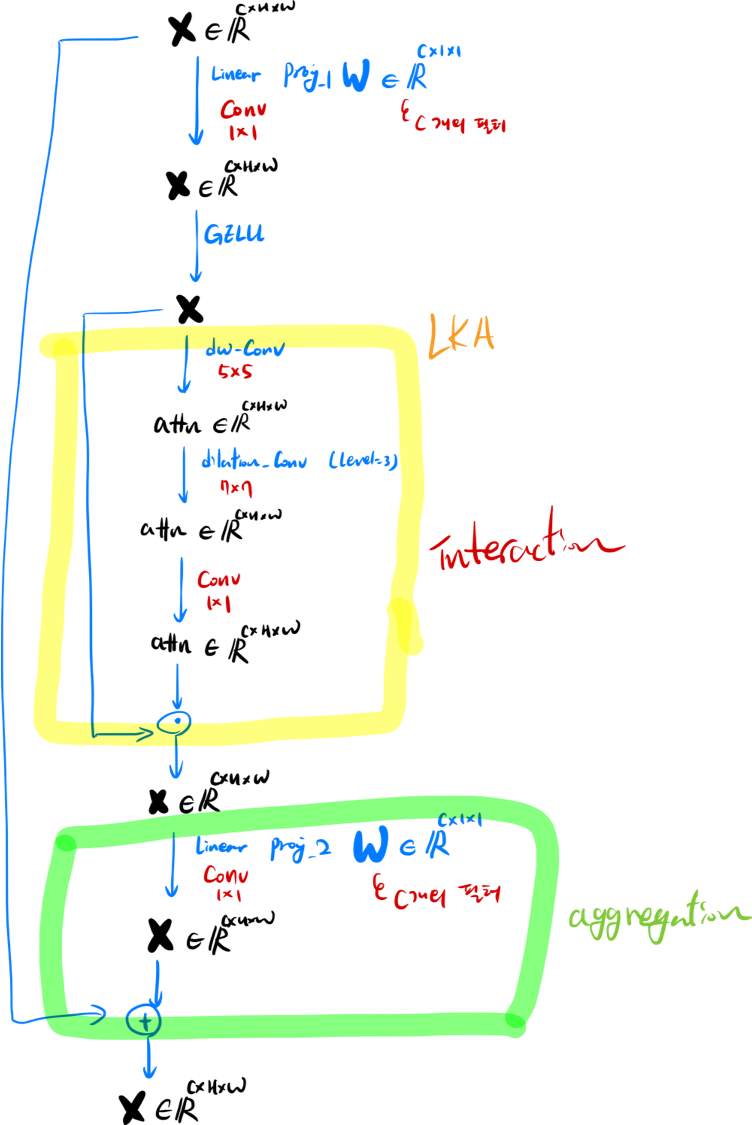 X ∈ ℝ^{C×H×W}
Linear Proj_1 W ∈ ℝ^{C×1×1}
Conv
1×1
C개의 필터
X ∈ ℝ^{C×H×W}
GELU
X
LKA
dw-Conv
5×5
attn ∈ ℝ^{C×H×W}
dilation_Conv (level=3)
7×7
attn ∈ ℝ^{C×H×W}
interaction
Conv
1×1
attn ∈ ℝ^{C×H×W}
X ∈ ℝ^{C×H×W}
Linear Proj_2 W ∈ ℝ^{C×1×1}
Conv
1×1
C개의 필터
aggregation
X ∈ ℝ^{C×H×W}
+
X ∈ ℝ^{C×H×W}